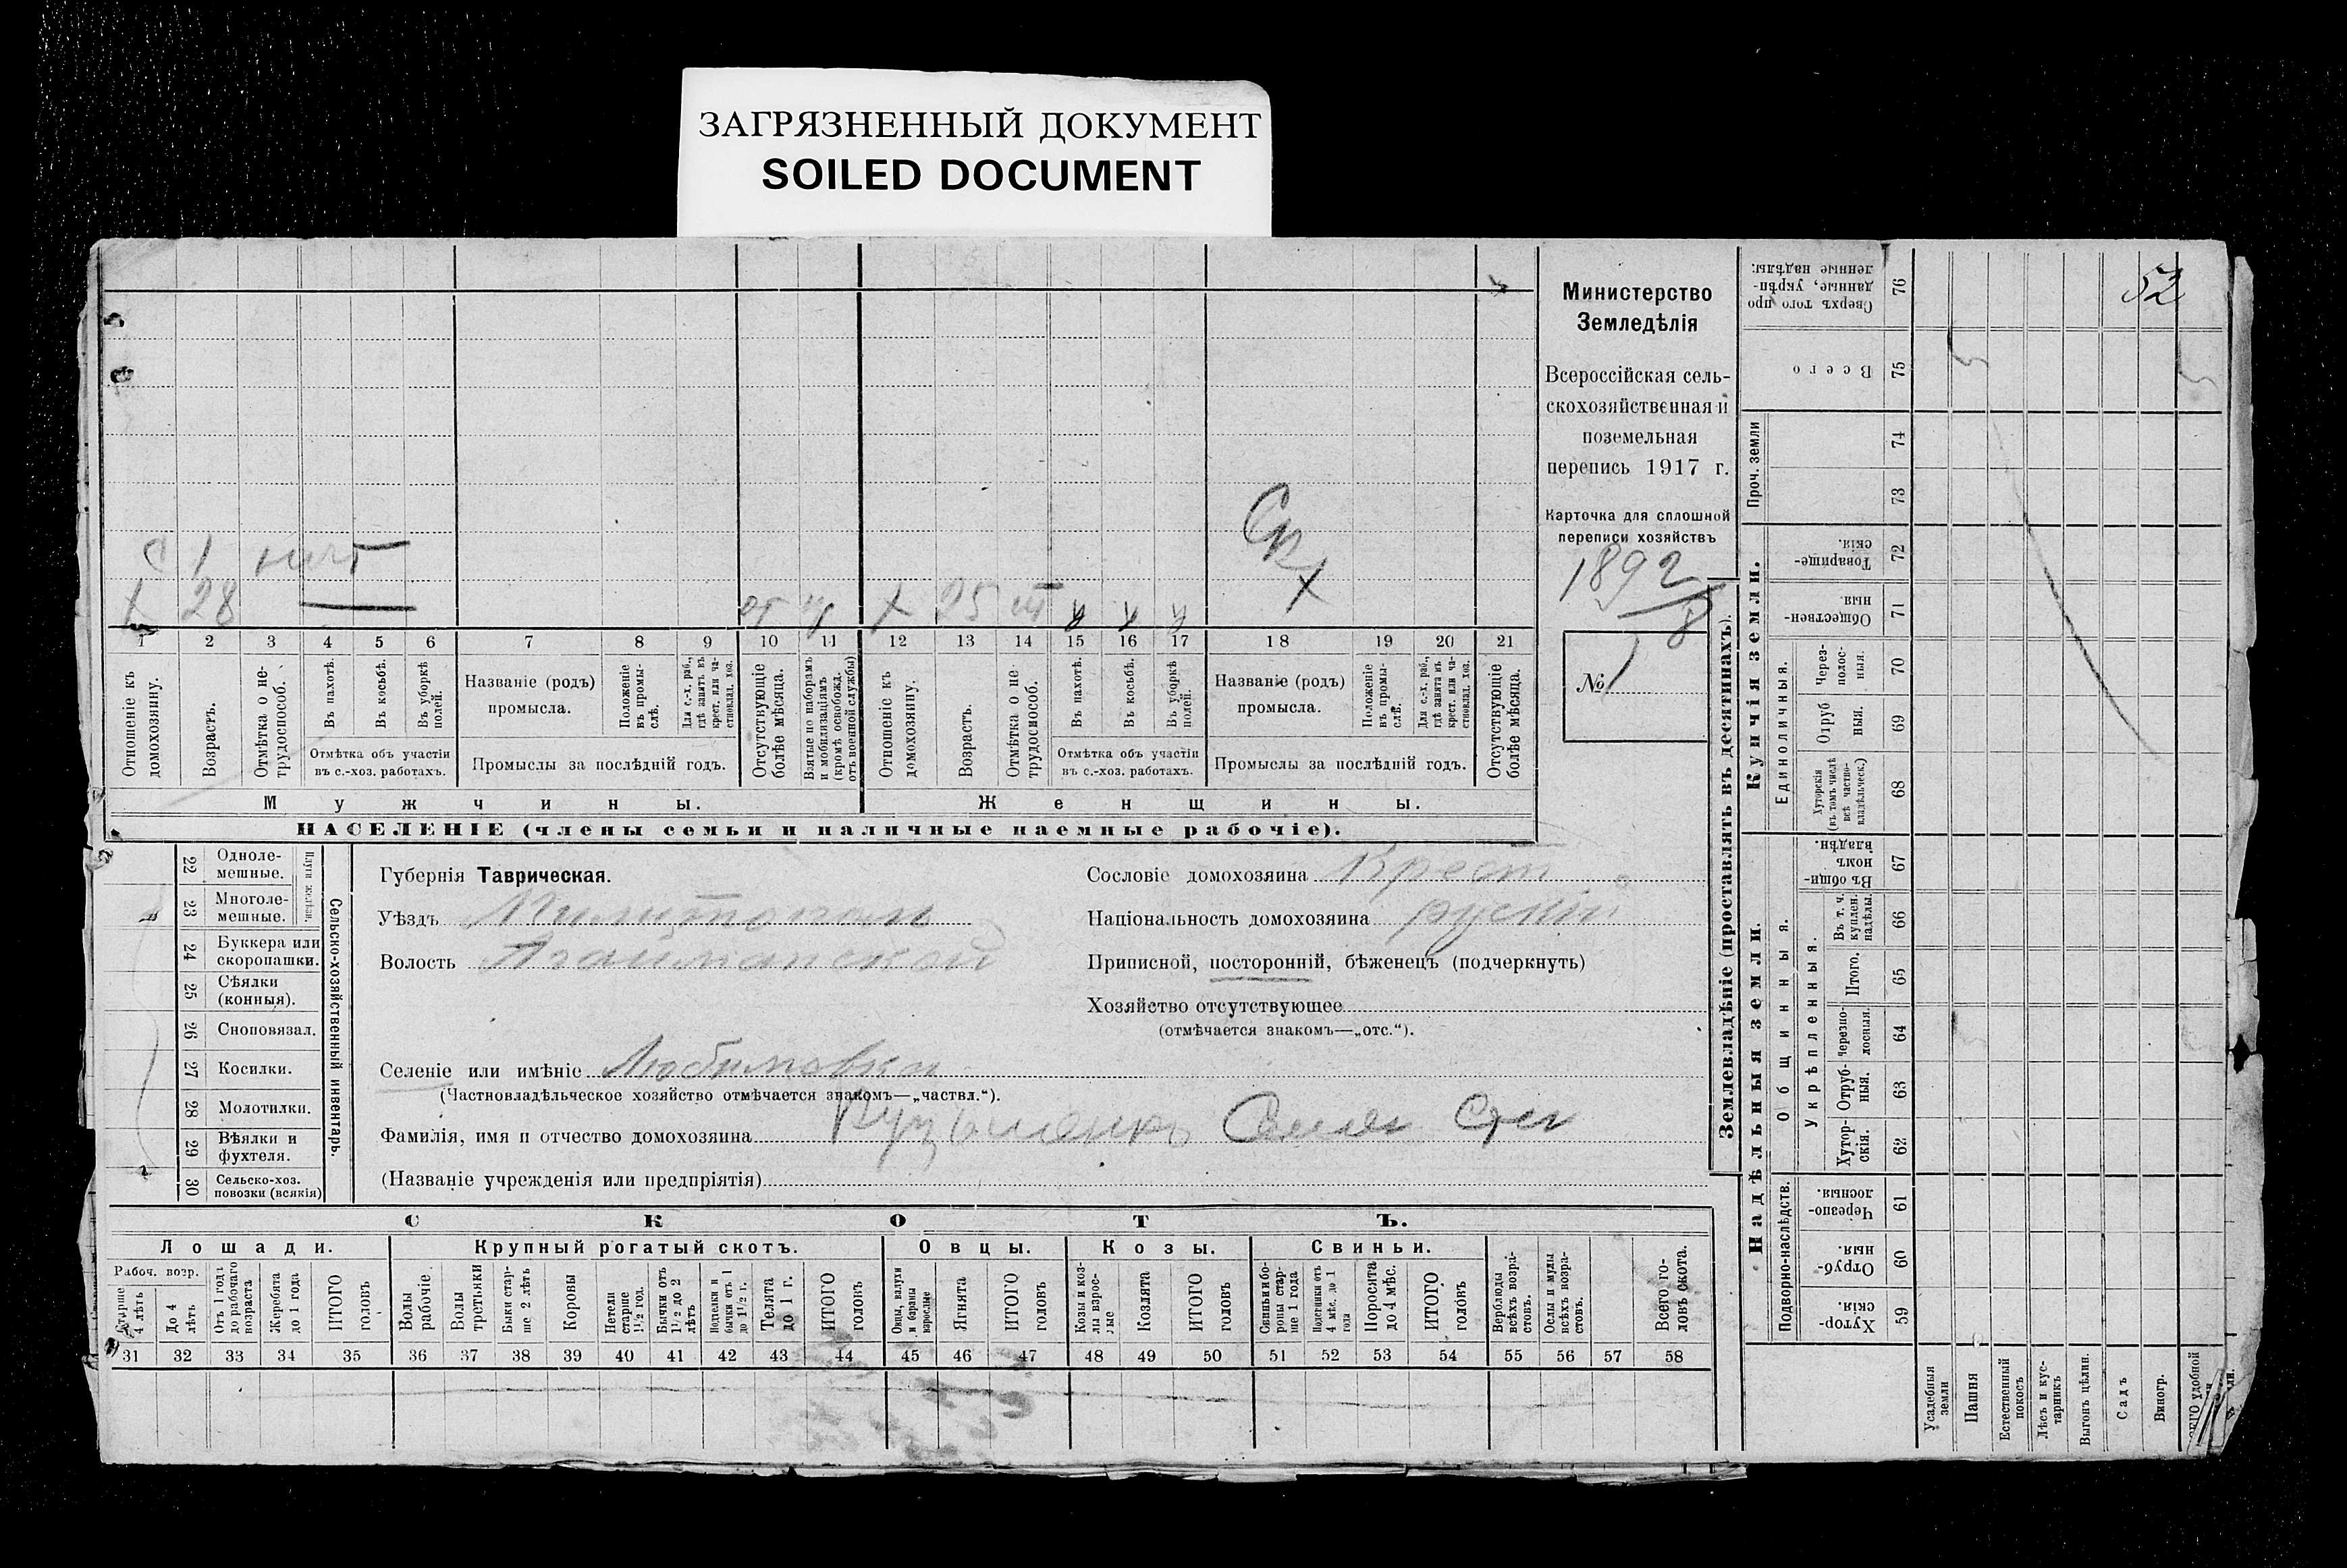 ЗАГРЯЗНЕННЫЙ ДОКУМЕНТ
SOILED DOCUMENT
52
Министерство
Земледѣлія
Всероссійская сель-
скохозяйственная и
поземельная
перепись 1917 г.
Карточка для сплошной
переписи хозяйствъ
1892
8
№ 1
1 28
х 25
1 2 3 4 5 6 7 8 9 10 11 12 13 14 15 16 17 18 19 20 21
Отношеніе къ домохозяину.
Возрастъ.
Отмѣтка о не-трудоспособ.
Въ пахотѣ.
Въ косьбѣ.
Въ уборкѣ полей.
Отмѣтка объ участіи
въ с.-хоз. работахъ.
Названіе (родъ)
промысла.
Положеніе въ промы-слѣ.
Для с.-х. раб., гдѣ занятъ въ крест. или ча-стновлад. хоз.
Промыслы за послѣдній годъ.
Отсутствующіе болѣе мѣсяца.
Взятые по наборамъ и мобилизаціямъ (кромѣ освобожд. отъ военной службы)
Отношеніе къ домохозяину.
Возрастъ.
Отмѣтка о не-трудоспособ.
Въ пахотѣ.
Въ косьбѣ.
Въ уборкѣ полей.
Отмѣтка объ участіи
въ с.-хоз. работахъ.
Названіе (родъ)
промысла.
Положеніе въ промы-слѣ.
Для с.-х. раб., гдѣ занята въ крест. или ча-стновлад. хоз.
Промыслы за послѣдній годъ.
Отсутствующіе болѣе мѣсяца.
Мужчины.
Женщины.
НАСЕЛЕНІЕ (члены семьи и наличные наемные рабочіе).
22 Одноле-мешные.
23 Многоле-мешные.
24 Буккера или скоропашки.
25 Сѣялки (конныя).
26 Сноповязал.
27 Косилки.
28 Молотилки.
29 Вѣялки и фухтеля.
30 Сельско-хоз. повозки (всякія)
Сельско-хозяйственный инвентарь.
Губернія Таврическая.
Уѣздъ
Волость Агайманской
Селеніе или имѣніе Любимовка
(Частновладѣльческое хозяйство отмѣчается знакомъ—„частвл.“).
Фамилія, имя и отчество домохозяина Кузьменко
(Названіе учрежденія или предпріятія)
Сословіе домохозяина Крест
Національность домохозяина
Приписной, посторонній, бѣженецъ (подчеркнуть)
Хозяйство отсутствующее
(отмѣчается знакомъ—„отс.“).
СКОТЪ.
Лошади.
Крупный рогатый скотъ.
Овцы.
Козы.
Свиньи.
Рабоч. возр.
Старше 4 лѣтъ
До 4 лѣтъ
Отъ 1 года до рабочаго возраста
Жеребята до 1 года
ИТОГО головъ
Волы рабочіе.
Волы третьяки
Быки стар-ше 2 лѣтъ
Коровы
Нетели старше 1½ год.
Бычки отъ 1½ до 2 лѣтъ
Телята до 1 г.
ИТОГО головъ
Овцы, валухи и бараны взрослые
Ягнята
ИТОГО головъ
Козы и коз-лы взрос-лые
Козлята
ИТОГО головъ
Свиньи и бо-ровы стар-ше 1 года
Подсвинки отъ 4 мѣс. до 1 года
Поросята до 4 мѣс.
ИТОГО головъ
Верблюды всѣхъ возра-стовъ.
Ослы и мулы всѣхъ возра-стовъ.
Всего го-ловъ скота.
31 32 33 34 35 36 37 38 39 40 41 42 43 44 45 46 47 48 49 50 51 52 53 54 55 56 57 58
Землевладѣніе (проставлять въ десятинахъ).
Купчія земли.
Надѣльныя земли.
76 Сверхъ того про данные, укрѣп-ленные надѣлы.
75 Всего
Проч. земли
74
73
72 Товарище-скія.
71 Обществен-ныя.
Единоличныя.
70 Через-полос-ныя.
69 Отруб ныя.
68 Хуторскія (въ томъ числѣ всѣ частно-владѣльческ.)
Общинныя.
67 Въ общи-номъ владѣн.
Укрѣпленныя.
66 Въ т. ч. куплен. надѣлы.
65 Итого.
64 Черезпо-лосныя.
63 Отруб-ныя.
62 Хутор-скія.
Подворно-наслѣдств.
61 Черезпо-лосныя.
60 Отруб-ныя.
59 Хутор-скія.
Усадебныя земли
Пашня
Естественный покосъ
Лѣсъ и кус-тарникъ
Выгонъ цѣлин.
Садъ
Виногр.